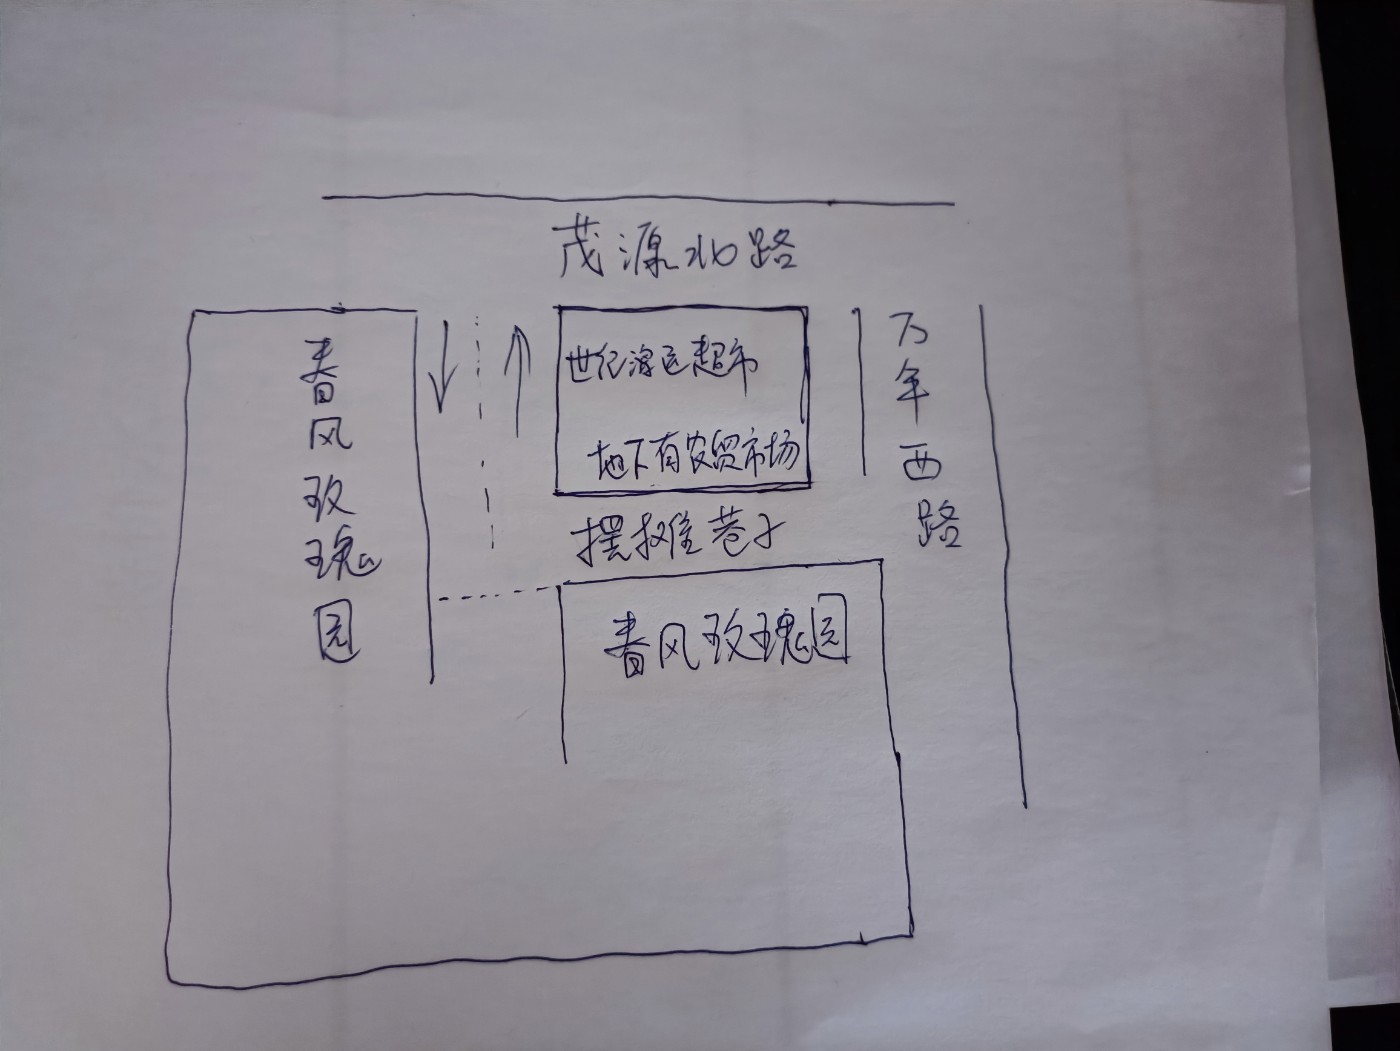 茂源北路
春风玫瑰园
世纪源运超市
地下有农贸市场
万年西路
摆摊巷子
春风玫瑰园